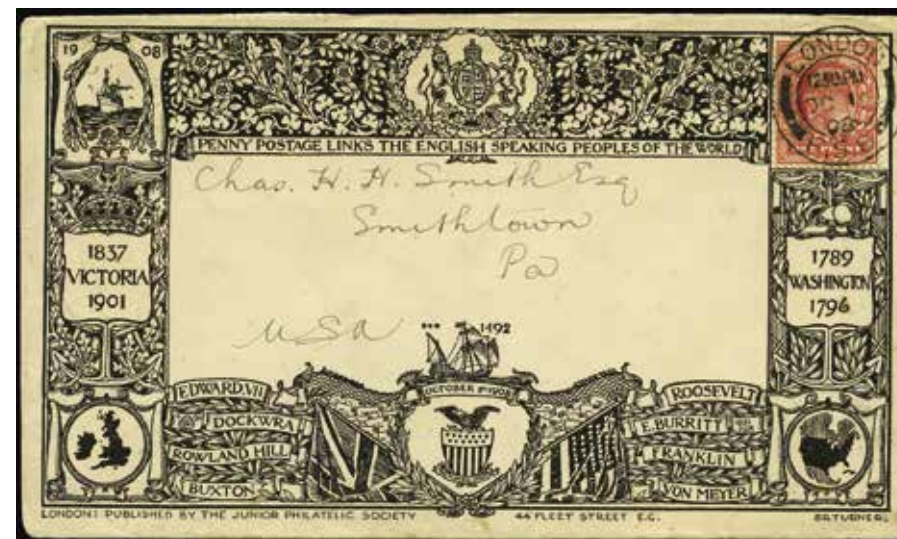 19 08
PENNY POSTAGE LINKS THE ENGLISH SPEAKING PEOPLES OF THE WORLD
LONDON
12.
OC 1
08
Chas. H. H. Smith Esq
Smithtown
Pa
USA
1837
VICTORIA
1901
1789
WASHINGTON
1796
1492
OCTOBER 1st 1908
EDWARD. VII
DOCKWRA
ROWLAND HILL
BUXTON
ROOSEVELT
E. BURRITT
FRANKLIN
VON MEYER
LONDON: PUBLISHED BY THE JUNIOR PHILATELIC SOCIETY 44 FLEET STREET E.C.